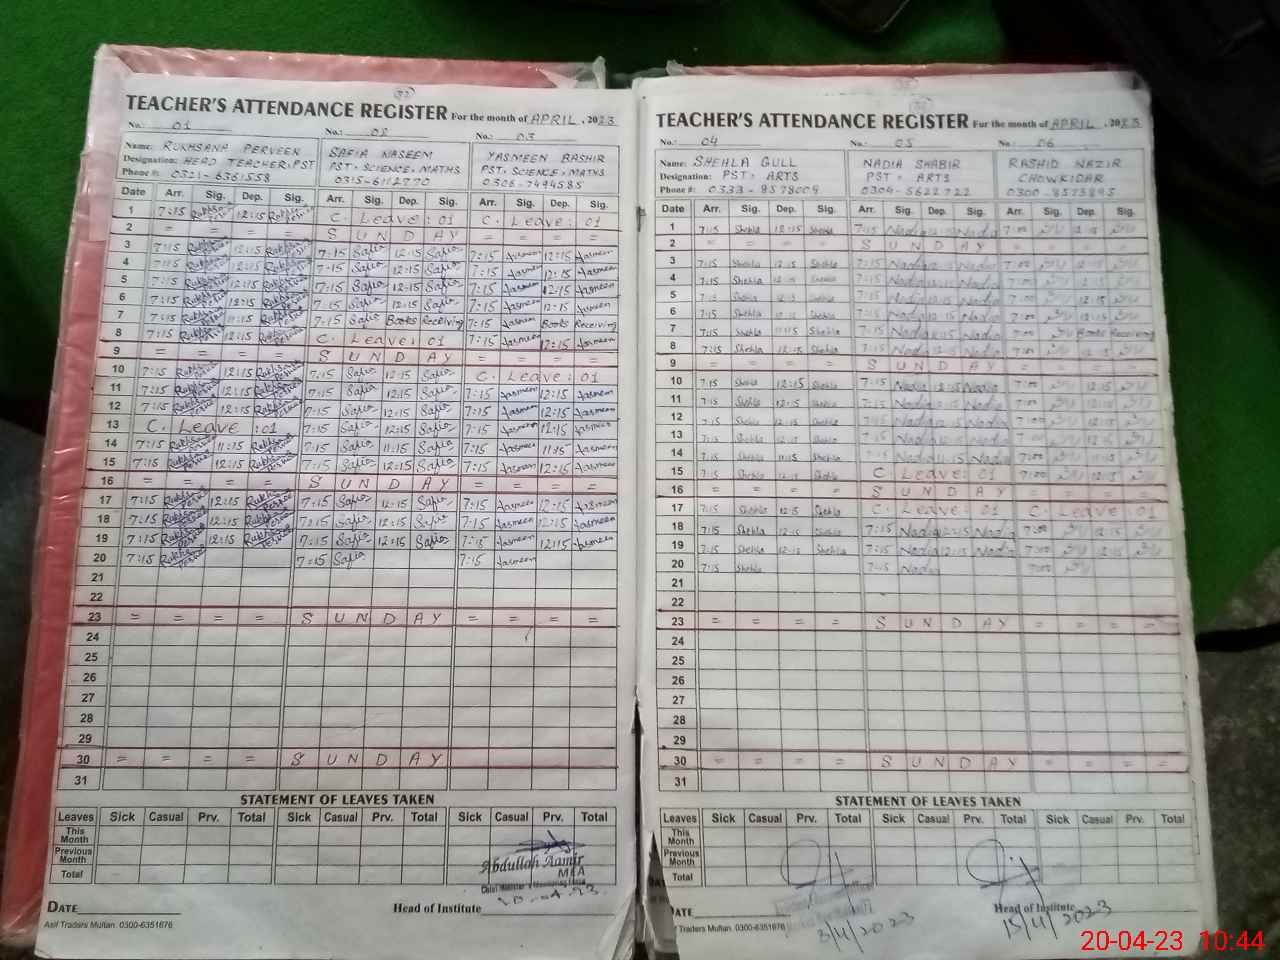 32
TEACHER'S ATTENDANCE REGISTER For the month of APRIL, 2023
No.: 01 No.: 02 No.: 03
Name: RUKHSANA PERVEEN SAFIA NASEEM YASMEEN BASHIR
Designation: HEAD TEACHER, PST PST, SCIENCE, MATHS PST, SCIENCE, MATHS
Phone #: 0321-6361558 0315-6112770 0306-7494585
Date Arr. Sig. Dep. Sig. Arr. Sig. Dep. Sig. Arr. Sig. Dep. Sig.
1 7:15 12:15 C. Leave: 01 C. Leave: 01
2 = = = = S U N D A Y = = = =
3 7:15 12:15 7:15 Safia 12:15 Safia 7:15 Yasmeen 12:15 Yasmeen
4 7:15 12:15 7:15 Safia 12:15 Safia 7:15 Yasmeen 12:15 Yasmeen
5 7:15 12:15 7:15 Safia 12:15 Safia 7:15 Yasmeen 12:15 Yasmeen
6 7:15 12:15 7:15 Safia 12:15 Safia 7:15 Yasmeen 12:15 Yasmeen
7 7:15 11:15 7:15 Safia Books Receiving 7:15 Yasmeen Books Receiving
8 7:15 12:15 C. Leave: 01 7:15 Yasmeen 12:15 Yasmeen
9 = = = = S U N D A Y = = = =
10 7:15 12:15 7:15 Safia 12:15 Safia C. Leave: 01
11 7:15 12:15 7:15 Safia 12:15 Safia 7:15 Yasmeen 12:15 Yasmeen
12 7:15 12:15 7:15 Safia 12:15 Safia 7:15 Yasmeen 12:15 Yasmeen
13 C. Leave: 01 7:15 Safia 12:15 Safia 7:15 Yasmeen 12:15 Yasmeen
14 7:15 11:15 7:15 Safia 11:15 Safia 7:15 Yasmeen 11:15 Yasmeen
15 7:15 12:15 7:15 Safia 12:15 Safia 7:15 Yasmeen 12:15 Yasmeen
16 = = = = S U N D A Y = = = =
17 7:15 12:15 7:15 Safia 12:15 Safia 7:15 Yasmeen 12:15 Yasmeen
18 7:15 12:15 7:15 Safia 12:15 Safia 7:15 Yasmeen 12:15 Yasmeen
19 7:15 12:15 7:15 Safia 12:15 Safia 7:15 Yasmeen 12:15 Yasmeen
20 7:15 7:15 Safia 7:15 Yasmeen
21
22
23 = = = = S U N D A Y = = = =
24
25
26
27
28
29
30 = = = = S U N D A Y
31
STATEMENT OF LEAVES TAKEN
Leaves Sick Casual Prv. Total Sick Casual Prv. Total Sick Casual Prv. Total
This Month
Previous Month
Total
Abdullah Aamir
MEA
DATE Head of Institute
Asif Traders Multan. 0300-6351676
TEACHER'S ATTENDANCE REGISTER For the month of APRIL, 2023
No.: 04 No.: 05 No.: 06
Name: SHEHLA GULL NADIA SHABIR RASHID NAZIR
Designation: PST, ARTS PST, ARTS CHOWKIDAR
Phone #: 0333-8578009 0304-5622722 0300-8573895
Date Arr. Sig. Dep. Sig. Arr. Sig. Dep. Sig. Arr. Sig. Dep. Sig.
1 7:15 Shehla 12:15 Shehla 7:15 Nadia 12:15 Nadia 7:00 12:15
2 = = = = S U N D A Y = = = =
3 7:15 Shehla 12:15 Shehla 7:15 Nadia 12:15 Nadia 7:00 12:15
4 7:15 Shehla 12:15 Shehla 7:15 Nadia 12:15 Nadia 7:00 12:15
5 7:15 Shehla 12:15 Shehla 7:15 Nadia 12:15 Nadia 7:00 12:15
6 7:15 Shehla 12:15 Shehla 7:15 Nadia 12:15 Nadia 7:00 12:15
7 7:15 Shehla 11:15 Shehla 7:15 Nadia 11:15 Nadia 7:00 Books Receiving
8 7:15 Shehla 12:15 Shehla 7:15 Nadia 12:15 Nadia 7:00 12:15
9 = = = = S U N D A Y = = = =
10 7:15 Shehla 12:15 Shehla 7:15 Nadia 12:15 Nadia 7:00 12:15
11 7:15 Shehla 12:15 Shehla 7:15 Nadia 12:15 Nadia 7:00 12:15
12 7:15 Shehla 12:15 Shehla 7:15 Nadia 12:15 Nadia 7:00 12:15
13 7:15 Shehla 12:15 Shehla 7:15 Nadia 12:15 Nadia 7:00 12:15
14 7:15 Shehla 11:15 Shehla 7:15 Nadia 11:15 Nadia 7:00
15 7:15 Shehla 12:15 Shehla C. Leave: 01 7:00 12:15
16 = = = = S U N D A Y = = = =
17 7:15 Shehla 12:15 Shehla C. Leave: 01 C. Leave: 01
18 7:15 Shehla 12:15 Shehla 7:15 Nadia 12:15 Nadia 7:00 12:15
19 7:15 Shehla 12:15 Shehla 7:15 Nadia 12:15 Nadia 7:00 12:15
20 7:15 Shehla 7:15 Nadia 7:00
21
22
23 = = = = S U N D A Y = = = =
24
25
26
27
28
29
30 = = = = S U N D A Y = = = =
31
STATEMENT OF LEAVES TAKEN
Leaves Sick Casual Prv. Total Sick Casual Prv. Total Sick Casual Prv. Total
This Month
Previous Month
Total
DATE Head of Institute
Traders Multan. 0300-6351676
3/4/2023
15/4/2023
20-04-23 10:44